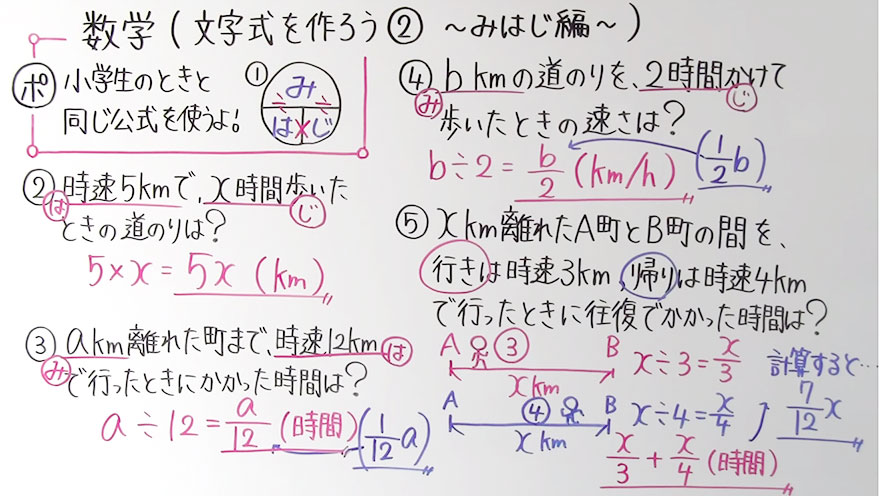 数学(文字式を作ろう② 〜みはじ編〜)
ポ 小学生のときと
同じ公式を使うよ!
①
み
は×じ
② 時速5kmで、x時間歩いた
は じ
ときの道のりは?
5×x=5x (km)
③ akm離れた町まで、時速12km
み は
で行ったときにかかった時間は?
a÷12=a/12(時間)(1/12a)
④ bkmの道のりを、2時間かけて
み じ
歩いたときの速さは?
b÷2=b/2(km/h)(1/2b)
⑤ xkm離れたA町とB町の間を、
行きは時速3km,帰りは時速4km
で行ったときに往復でかかった時間は?
A ③ B x÷3=x/3 計算すると…
xkm
A ④ B x÷4=x/4 7/12x
xkm
x/3+x/4(時間)